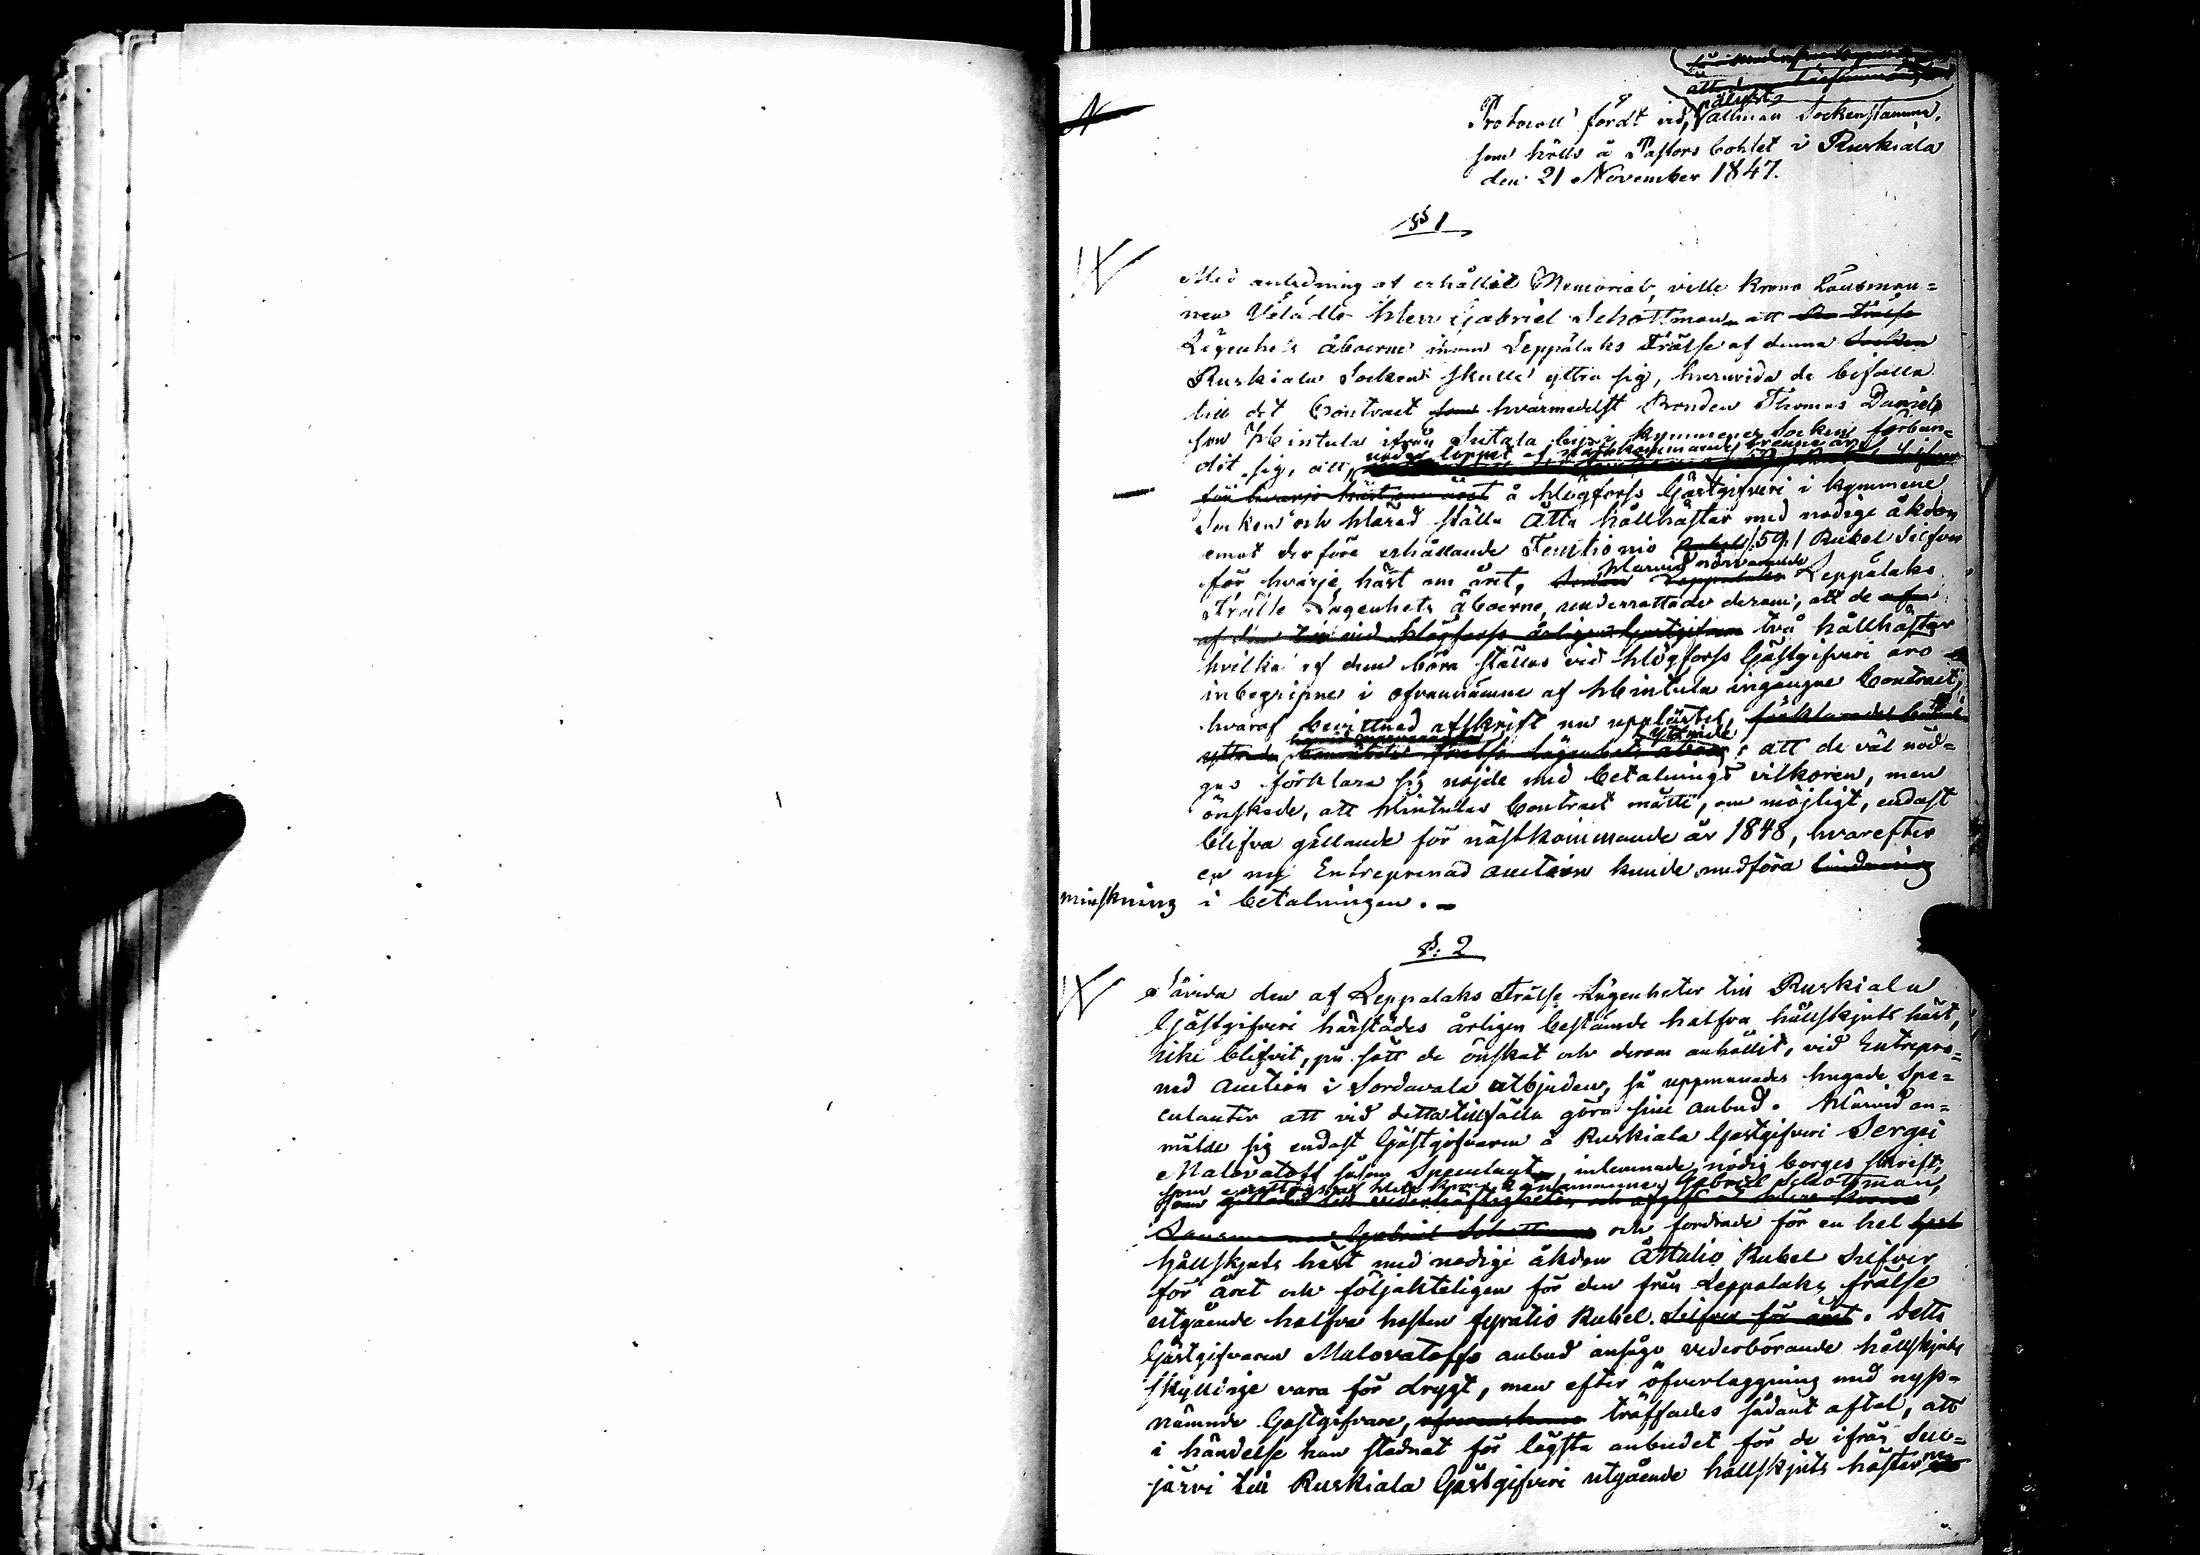 pålyst
Protocoll fördt vid, allmän Sockenstamma,
som hölls å Pastors bohlet i Ruskiala
den 21 November 1847.
§ 1
Med anledning af erhållit Memorial, ville Krono Länsman=
nen Välädle Herr Gabriel Schottman att
Lägenhets åboerne inom Leppälaks Frälse af denna Socken
Ruskiala Socken skulle yttra sig, huruvida de bifalla
till det Contract som hvarmedelst Bonden Thomas Daniels
son Hintula ifrån Sutala by i Kymmene Socken förbun=
dit sig, att,
under loppet af nästkommande trenne år
för hvarje häst om året å Högfors Gästgifveri i Kymmene
Socken och Härad ställa Åtta hållhästar med nödige åkdon
emot derföre erhållande Femtionio Rubel /:59:/ Rubel Silfver
för hvarje häst om året, Härvid närvarande Leppälaks
Frälse Lägenhets åboerne, underrättade derom, att de
af dem till vid Högfors årligen Gästgifveri två hållhästar
hvilka af dem böra ställas vid Högfors Gästgifveri äro
inbegripne i ofvannämne af Hintula ingångne Contract,
hvaraf bevittnad afskrift nu upplästes, förklarades
yttrade frälse lägenhets åboer yttrade: att de väl nöd=
gas förklara sig nöjde med betalnings vilkoren, men
önskade, att Hintulas Contract måtte, om möjligt, endast
blifva gällande för nästkommande år 1848, hvarefter
en ny Entreprenad auction kunde medföra lindring
minskning i betalningen.
§: 2
Såvida den af Leppälaks Frälse Lägenheter till Ruskiala
Gästgifveri härstädes årligen bestämde halfva hållskjuts häst,
icke blifvit, på sätt de önskat och derom anhållit, vid Entrepre=
nad Auction i Sordavala utbjuden, så uppmanades hugade Spe=
culanter att vid detta tillfälle göra sine anbud. Härvid an=
mälde sig endast Gästgifvaren å Ruskiala Gästgifveri Sergei
Malovatoff såsom Speculant, inlemnade nödig borges skrift,
som emottogs af Herr Krono Länsmannen Gabriel Schottman,
Länsmannen Gabriel Schottman och fordrade för en hel
hållskjuts häst med nödige åkdon Åttatio Rubel Silfver
för året och följakteligen för den från Leppälaks frälse
utgående halfva hästen fyratio Rubel. Silfver för året. Detta
Gästgifvaren Malovatoffs anbud ansågo vederbörande hållskjuts
skyldige vara för drygt, men efter öfverläggning med nyss=
nämnde Gästgifvare, träffades sådant aftal, att
i händelse han stadnat för lägsta anbudet för de ifrån Suo=
järvi till Ruskiala Gästgifveri utgående hållskjuts hästar